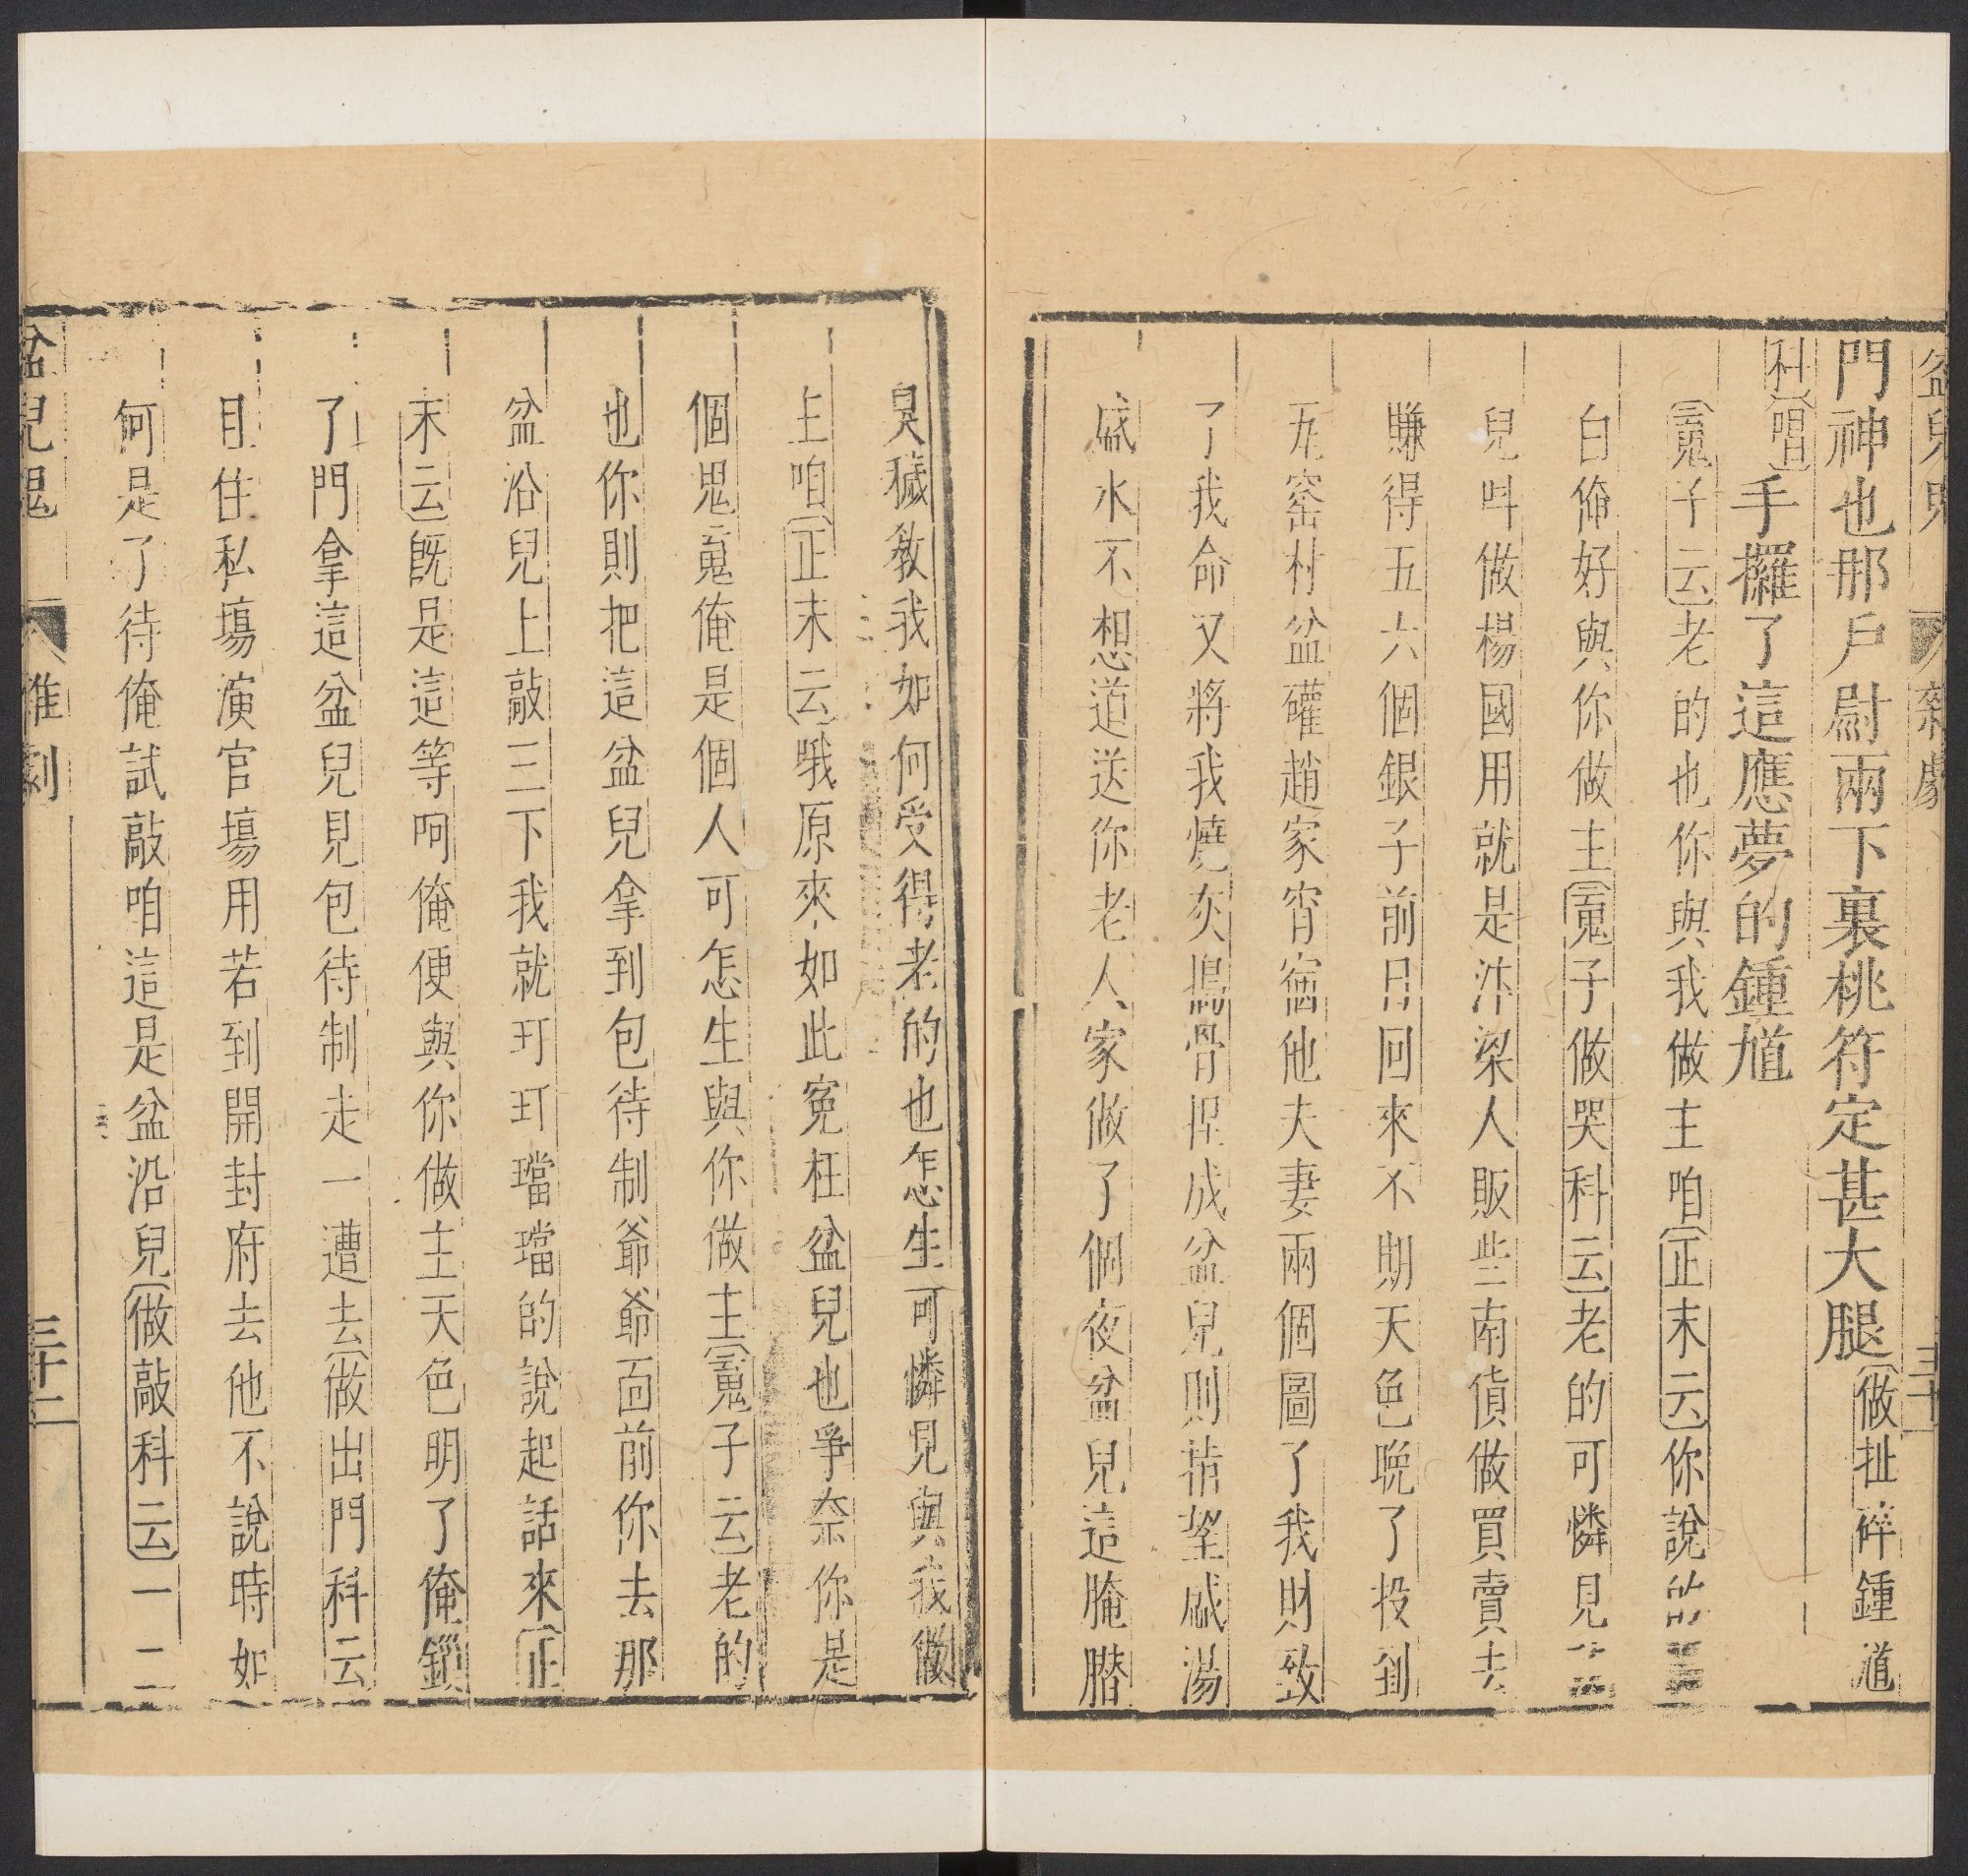 盆兒鬼 雜劇 三十一
門神也那戶尉兩下裏桃符定甚大腿(做扯碎鍾馗
科)(唱)手攞了這應夢的鍾馗
(䰟子云)老的也你與我做主咱(正末云)你說的
白俺好與你做主(䰟子做哭科云)老的可憐見
兒呌做楊國用就是汴梁人販些南貨做買賣去
賺得五六個銀子前日回來不期天色晚了投到
瓦窑村盆礶趙家宵宿他夫妻兩個圖了我財致
了我命又將我燒灰搗骨捏成盆兒則指望盛湯
盛水不想道送你老人家做了個夜盆兒這腌臢
臭穢敎我如何受得老的也怎生可憐見與我做
主咱(正末云)哦原來如此寃枉盆兒也爭奈你是
個鬼䰟俺是個人可怎生與你做主(䰟子云)老的
也你則把這盆兒拿到包待制爺爺面前你去那
盆沿兒上敲三下我就玎玎璫璫的說起話來(正
末云)旣是這等呵俺便與你做主天色明了俺鎖
了門拿這盆兒見包待制走一遭去(做出門科云
且住私塲演官塲用若到開封府去他不說時如
何是了待俺試敲咱這是盆沿兒(做敲科云)一二
盆兒鬼 雜劇 三十二